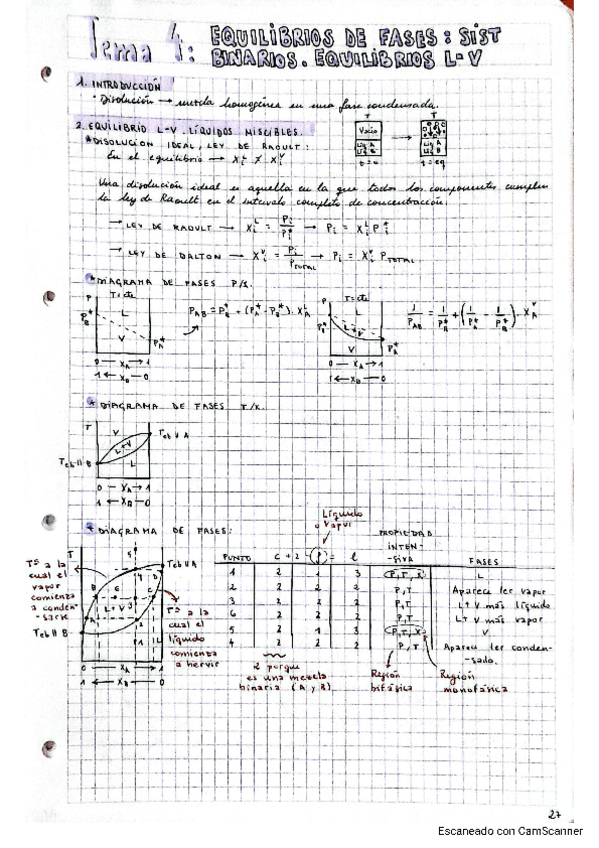 Tema 4: EQUILIBRIOS DE FASES: SIST
BINARIOS. EQUILIBRIOS L-V
1. INTRODUCCIÓN
· Disolución → mezcla homogénea en una fase condensada.
2. EQUILIBRIO L-V. LÍQUIDOS MISCIBLES.
* DISOLUCIÓN IDEAL, LEY DE RAOULT:
En el equilibrio → X_i^L ≠ X_i^V
T T
Vacío
Liq A
Liq B
Liq A
Liq B
t=0 t=eq
Una disolución ideal es aquella en la que todos los componentes cumplen
la ley de Raoult en el intervalo completo de concentración.
→ LEY DE RAOULT → X_i^L = P_i / P_i^* → P_i = X_i^L P_i^*
→ LEY DE DALTON → X_i^V = P_i / P_TOTAL → P_i = X_i^V P_TOTAL
* DIAGRAMA DE FASES P/X.
P T=cte
L
P_B^*
V
P_A^*
0 — X_A → 1
1 ← X_B — 0
P_AB = P_B^* + (P_A^* - P_B^*) · X_A^L
P T=cte
L
P_B^*
L+V
V
P_A^*
0 — X_A → 1
1 ← X_B — 0
1/P_AB = 1/P_B^* + (1/P_A^* - 1/P_B^*) · X_A^V
* DIAGRAMA DE FASES T/X.
T V
Teb N A
L+V
Teb N B
L
0 — X_A → 1
1 ← X_B — 0
* DIAGRAMA DE FASES:
T
Tª a la
cual el
vapor
comienza
a conden-
-sarse
Teb N A
L+V
Teb N B
Tª a la
cual el
líquido
comienza
a hervir
0 — X_A → 1
1 ← X_B — 0
Líquido
o Vapor
PROPIEDAD
INTEN-
-SIVA
PUNTO C + 2 - P = l FASES
1 2 1 3 P,T,X L
2 2 2 2 P,T Aparece 1er vapor
3 2 2 2 P,T L+V más líquido
6 2 2 2 P,T L+V más vapor
5 2 1 3 P,T,X V
4 2 2 2 P,T Aparece 1er conden-
-sado.
2 porque
es una mezcla
binaria (A y B)
Región
bifásica
Región
monofásica
27
Escaneado con CamScanner